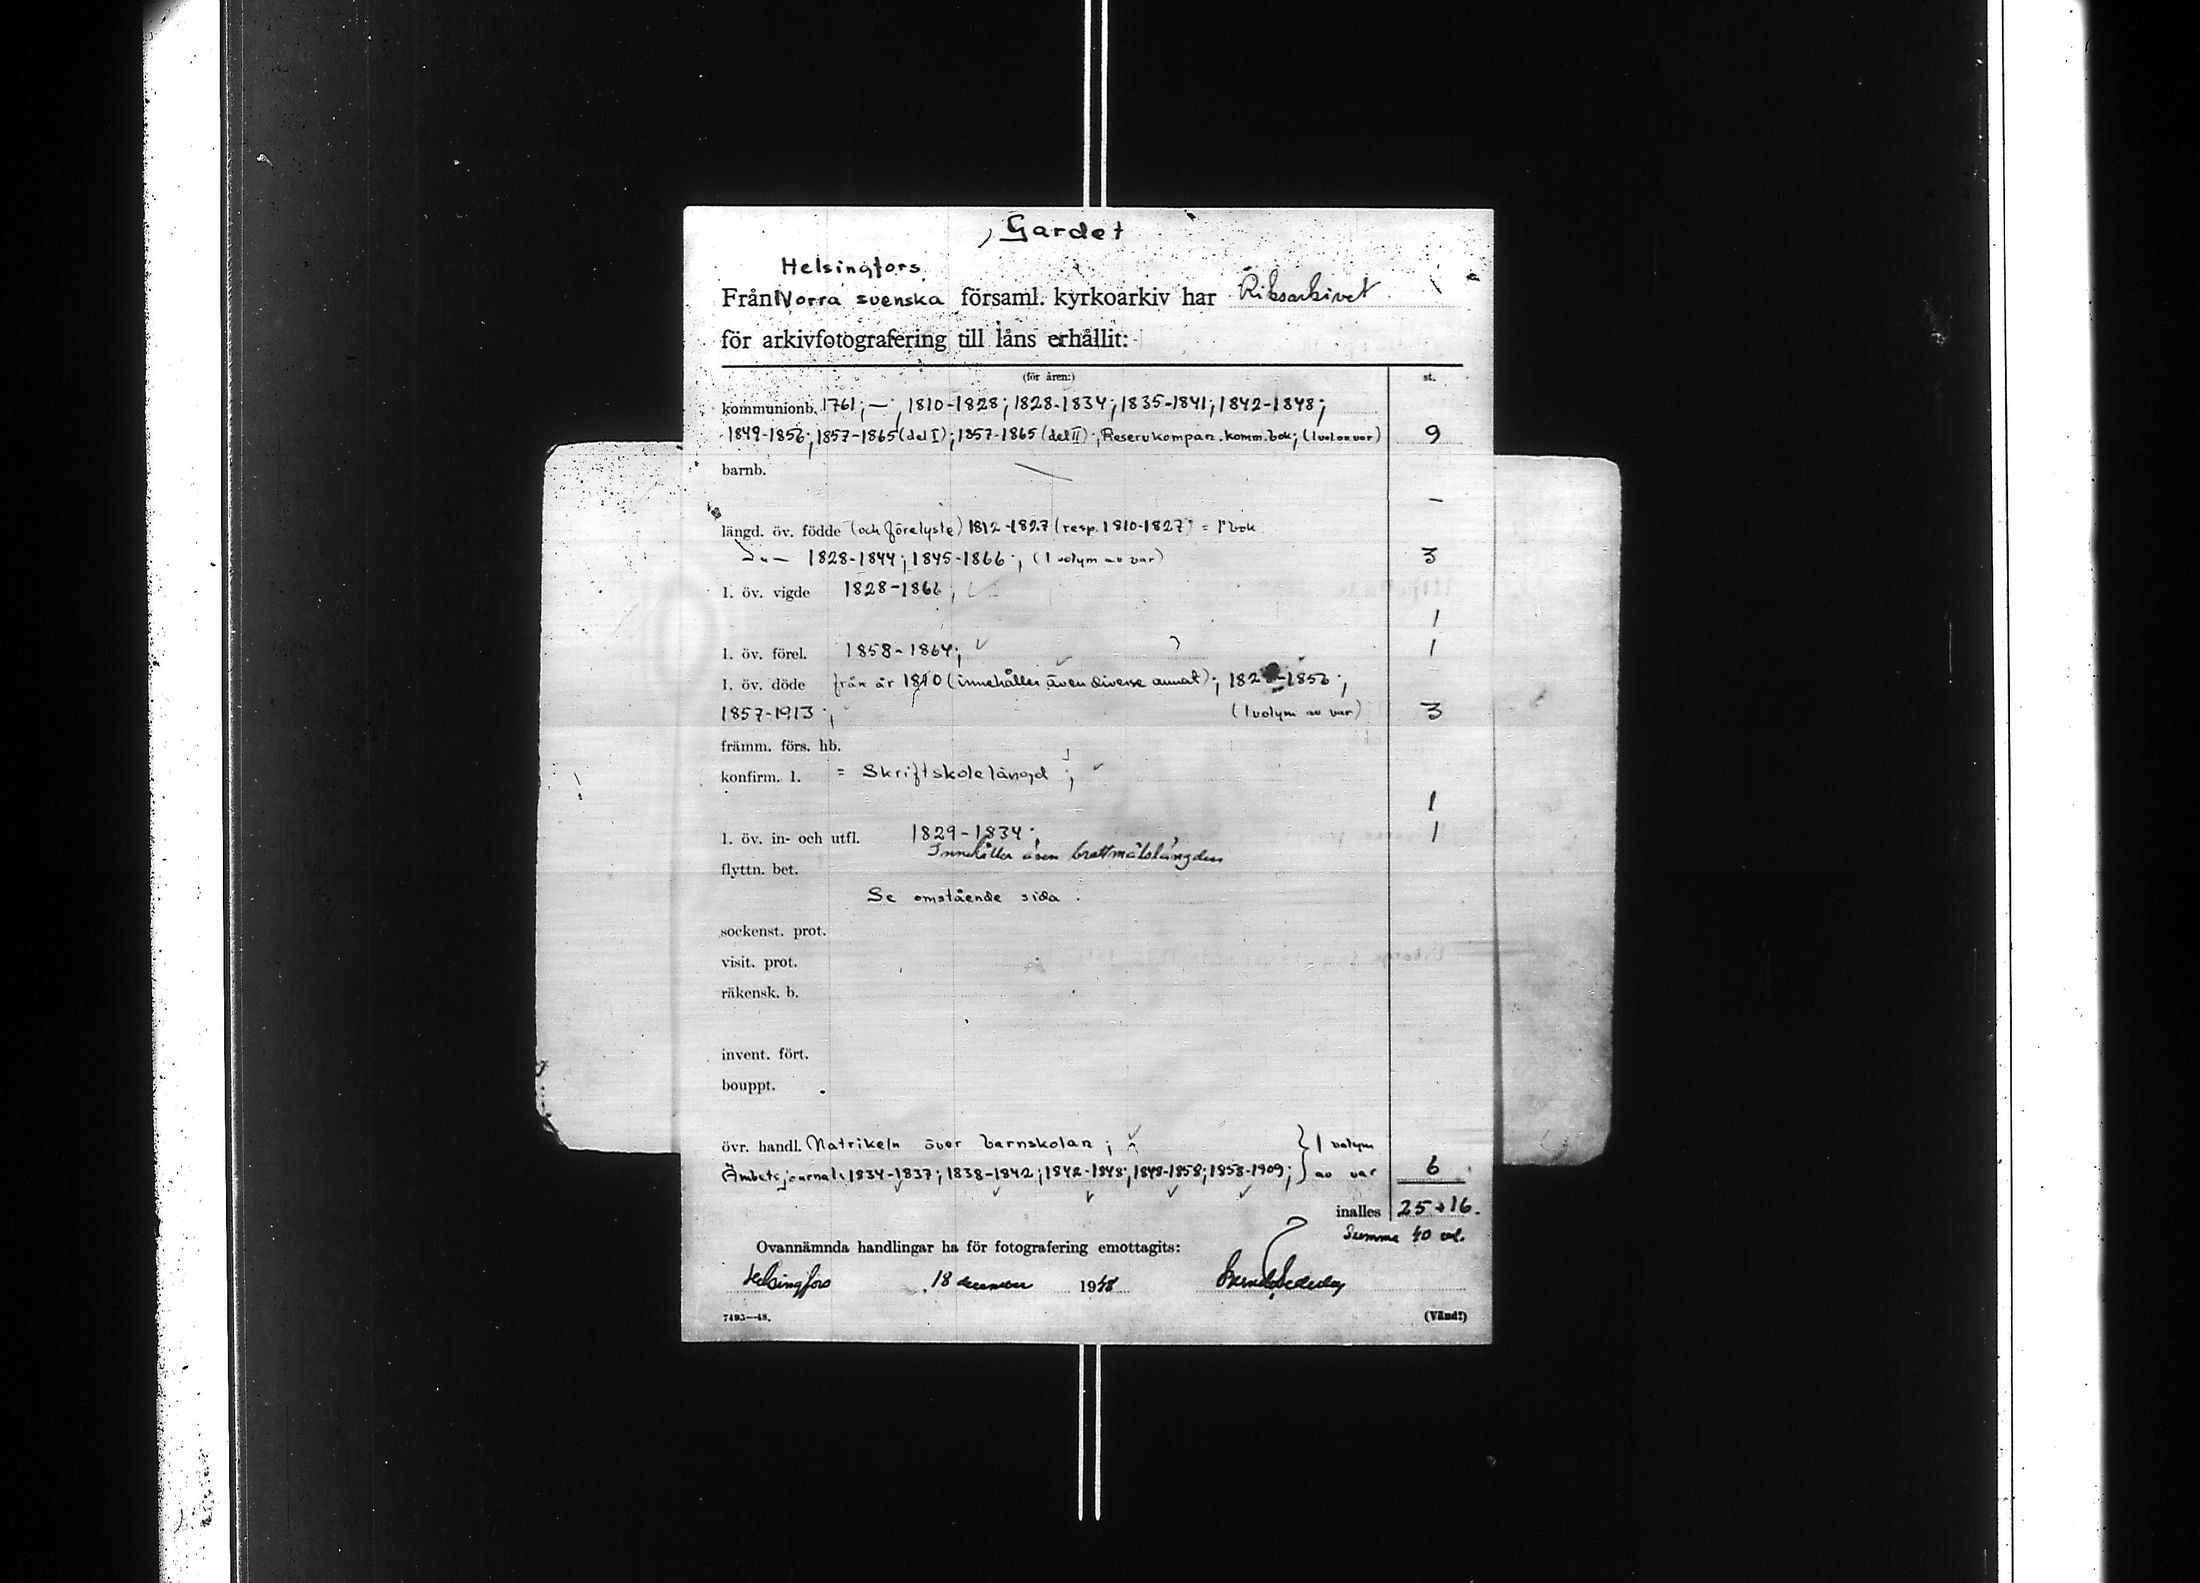 Gardet
Helsingfors
Från Norra svenska församl. kyrkoarkiv har Riksarkivet
för arkivfotografering till låns erhållit:
(för åren:) st.
kommunionb. 1761; — ; 1810-1828; 1828-1834; 1835-1841; 1842-1848;
1849-1856; 1857-1865 (del I); 1857-1865 (del II); Reservkompan. komm.bok; (1 vol av var) 9
barnb.
—
längd. öv. födde (och förelyste) 1812-1827 (resp. 1810-1827) = 1 bok
1828-1844; 1845-1866; (1 volym av var) 3
l. öv. vigde 1828-1866;
1
l. öv. förel. 1858-1864; 1
l. öv. döde från år 1810 (innehåller även diverse annat); -1856;
1857-1913; (1 volym av var) 3
främm. förs. hb.
konfirm. l. = Skriftskolelängd;
1
l. öv. in- och utfl. 1829-1834; 1
Innehåller även brottmålslängden
flyttn. bet.
Se omstående sida.
sockenst. prot.
visit. prot.
räkensk. b.
invent. fört.
bouppt.
övr. handl. Matrikeln över barnskolan; } 1 volym
Ämbetsjournal. 1834-1837; 1838-1842; 1842-1848; 1848-1858; 1858-1909; } av var 6
inalles 25+16.
Summa 40 vol.
Ovannämnda handlingar ha för fotografering emottagits:
Helsingfors 18 december 1948
7495—48. (Vänd!)